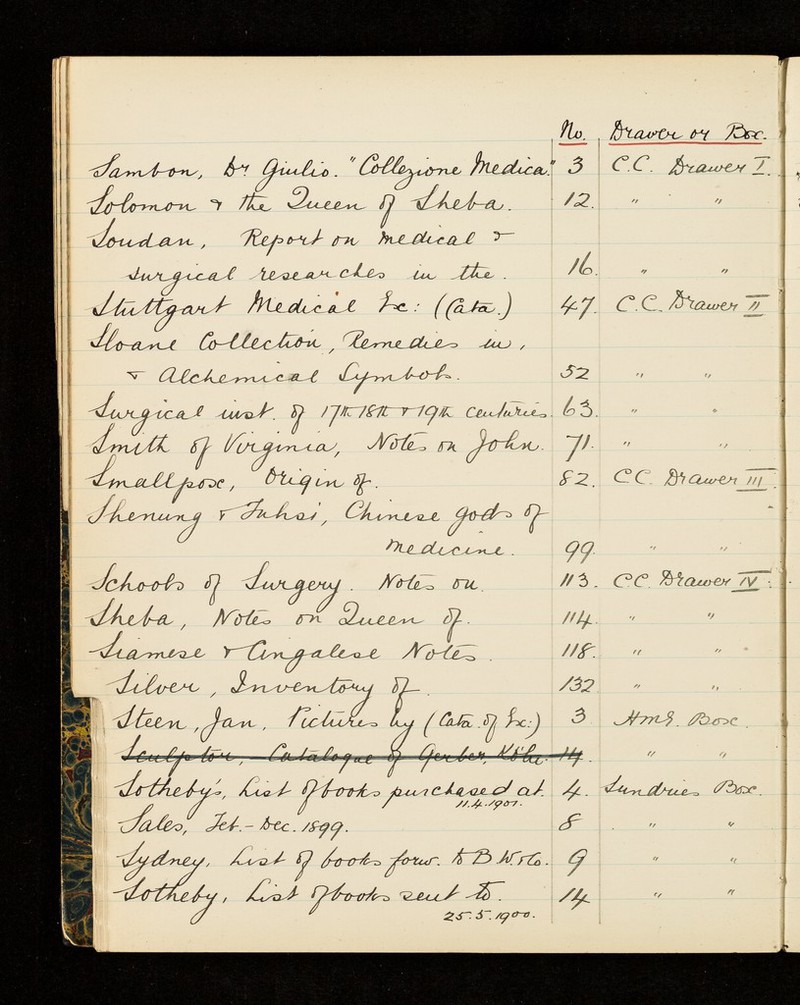 No. Drawer or Box.
Sambon, Dr Giulio. "Collezione Medica." 3 C.C. Drawer I.
Solomon & the Queen of Sheba. 12. " "
Soudan, Report on medical &
surgical researches in the. 16. " "
Stuttgart Medical Ex: (Cata.) 47. C.C. Drawer II
Sloane Collection, Remedies in,
& Alchemical Symbols. 52 " "
Surgical inst. of 17th 18th & 19th centuries. 63. " "
Smith of Virginia, Notes on John. 71. " "
Smallpox, Origin of. 82. C.C. Drawer III.
Shenung & Fuhsi, Chinese gods of
Medicine. 99. " "
Schools of Surgery. Notes on. 113. C.C. Drawer IV.
Sheba, Notes on Queen of. 114. " "
Siamese & Cingalese Notes. 118. " "
Silver, Inventory of. 132 " "
Steen, Jan, Pictures by (Cata. of Ex:) 3 H.M.E. Box.
Sculptor, Catalogue of Gerber, Köln. 14. " "
Sotheby's, List of books purchased at. 4. Sundries Box.
11.4.1901.
Sales, Feb. - Dec. 1899. 8 " "
Sydney, List of books forw. to B.W. & Co. 9 " "
Sotheby, List of books sent to. 14 " "
25.5.1900.